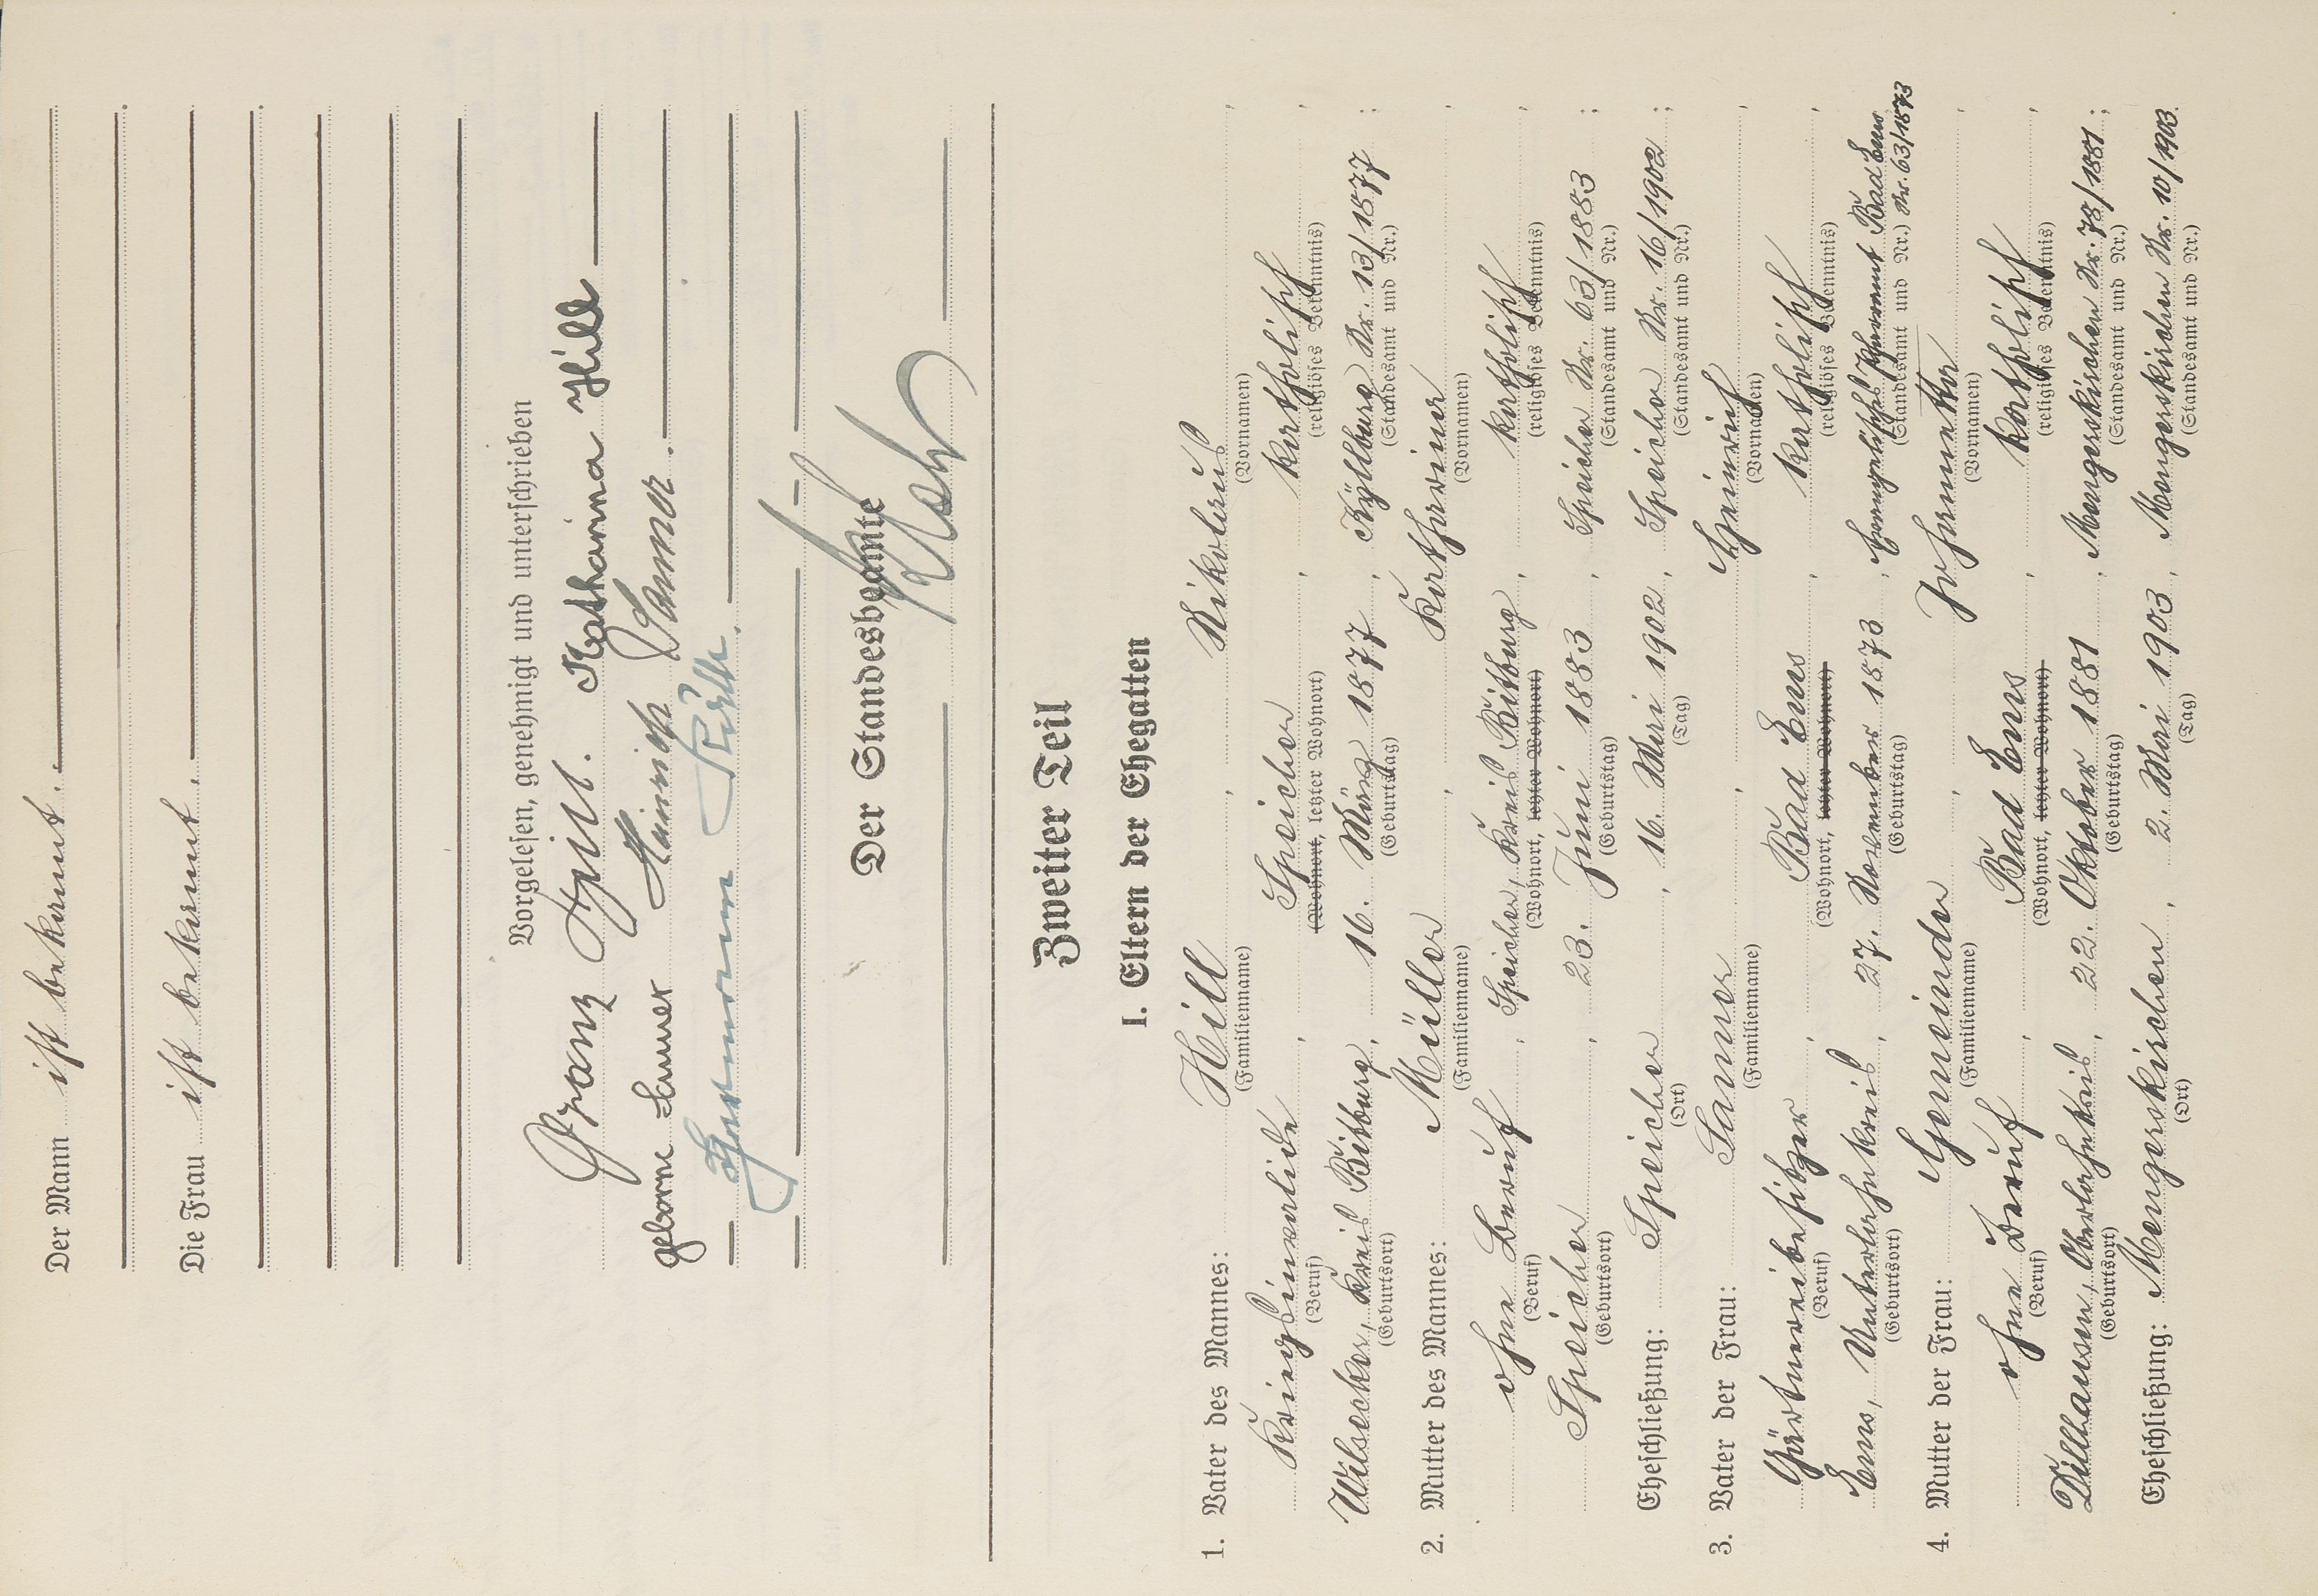 Der Mann ist bekannt.
Die Frau ist bekannt.
Vorgelesen, genehmigt und unterschrieben
Franz Hill. Katharina Hill
geborne Sanner Heinrich Sanner.
Hermann
Der Standesbeamte
Zweiter Teil
I. Eltern der Ehegatten
1. Vater des Mannes: Hill, Nikolaus,
(Familienname) (Vornamen)
Kriegsinvalide, Speicher, katholisch,
(Beruf) (Wohnort, letzter Wohnort) (religiöses Bekenntnis)
Wilsecker, Kreis Bitburg, 16. März 1877, Kyllburg Nr. 13/1877;
(Geburtsort) (Geburtstag) (Standesamt und Nr.)
2. Mutter des Mannes: Müller, Katharina,
(Familienname) (Vornamen)
ohne Beruf, Speicher, Kreis Bitburg, katholisch,
(Beruf) (Wohnort, letzter Wohnort) (religiöses Bekenntnis)
Speicher, 23. Juni 1883, Speicher Nr. 63/1883;
(Geburtsort) (Geburtstag) (Standesamt und Nr.)
Eheschließung: Speicher, 16. Mai 1902, Speicher Nr. 16/1902;
(Ort) (Tag) (Standesamt und Nr.)
3. Vater der Frau: Sanner, Heinrich,
(Familienname) (Vornamen)
Gärtnereibesitzer, Bad Ems, katholisch,
(Beruf) (Wohnort, letzter Wohnort) (religiöses Bekenntnis)
Ems, Unterlahnkreis, 27. November 1873, Evangelisches Pfarramt Bad Ems
(Geburtsort) (Geburtstag) (Standesamt und Nr.) Nr. 63/1873
4. Mutter der Frau: Gemeinder, Johannetta,
(Familienname) (Vornamen)
ohne Beruf, Bad Ems, katholisch,
(Beruf) (Wohnort, letzter Wohnort) (religiöses Bekenntnis)
Dillhausen, Oberlahnkreis, 22. Oktober 1881, Mengerskirchen Nr. 78/1881;
(Geburtsort) (Geburtstag) (Standesamt und Nr.)
Eheschließung: Mengerskirchen, 2. Mai 1903, Mengerskirchen Nr. 10/1903.
(Ort) (Tag) (Standesamt und Nr.)